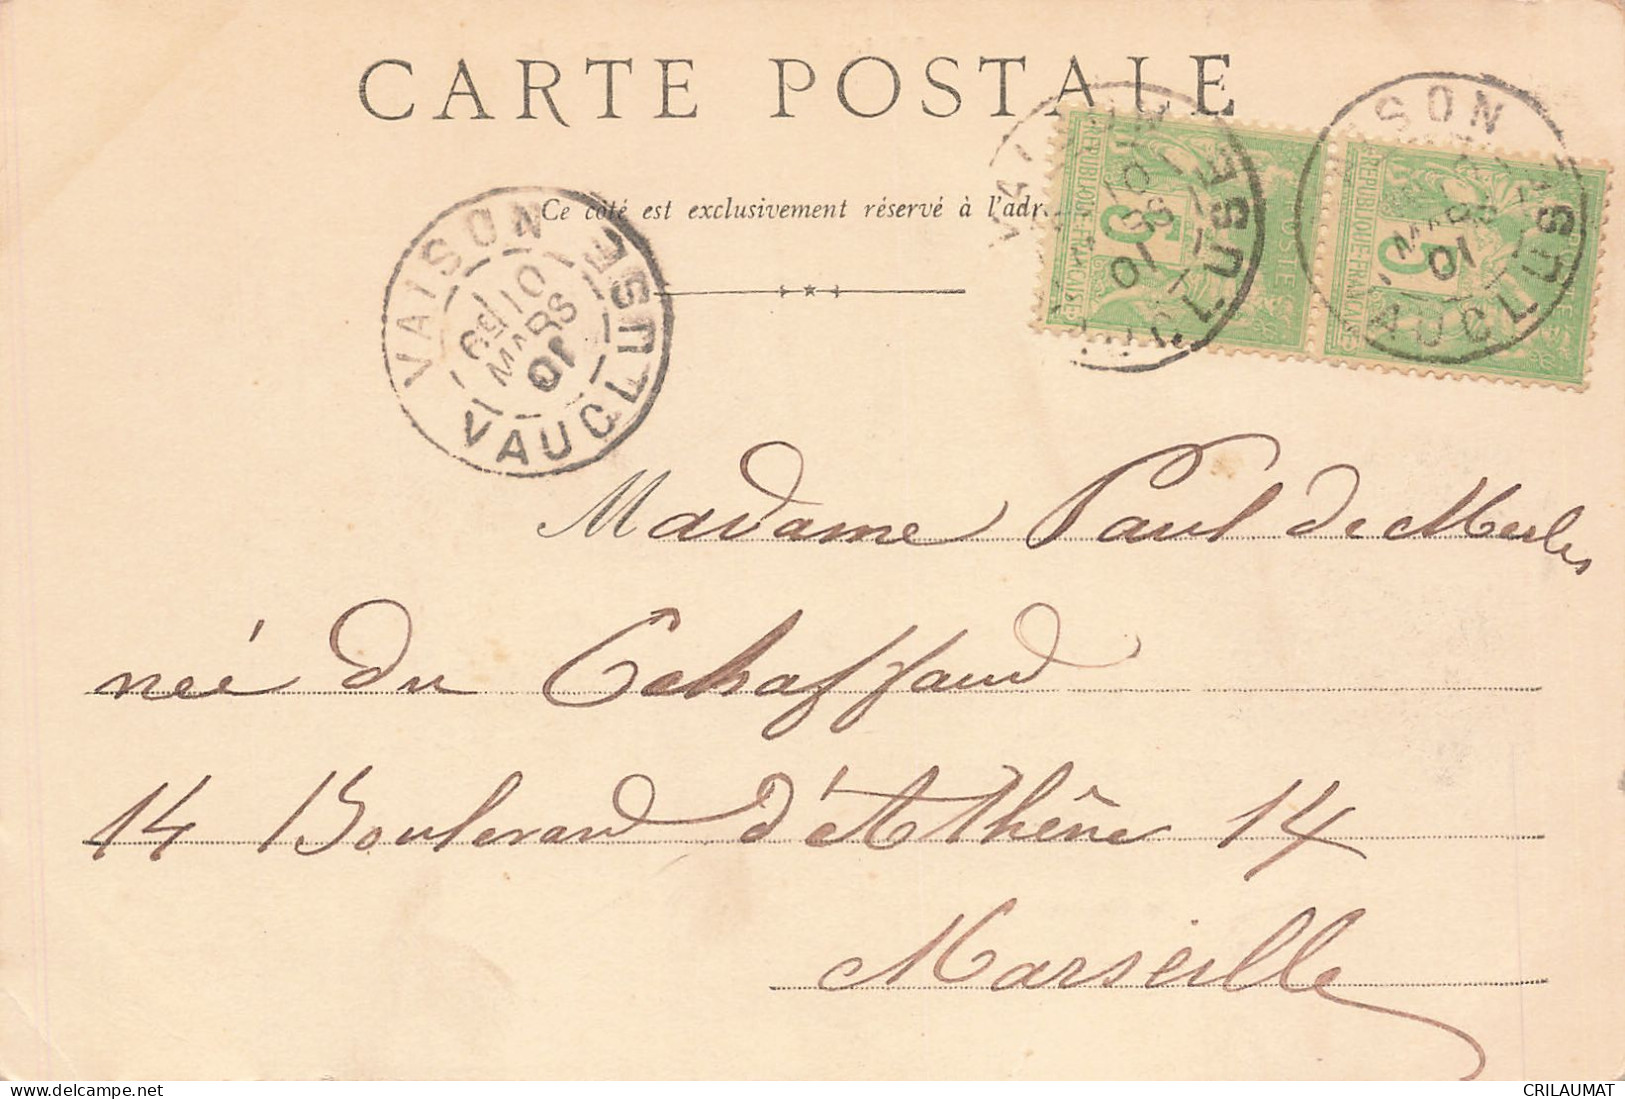 CARTE POSTALE
Ce côté est exclusivement réservé à l'adr
VAISON
6ᴱ 10
MARS
01
VAUCLUSE
VAISON
10
MARS
01
VAUCLUSE
REPUBLIQUE FRANÇAISE
5
POSTE
ISON
MARS
01
VAUCLUSE
REPUBLIQUE FRANÇAISE
5
POSTE
Madame Paul de Merles
née du Echaffaud
14 Boulevard d'Athêne 14
Marseille
www.delcampe.net
CRILAUMAT